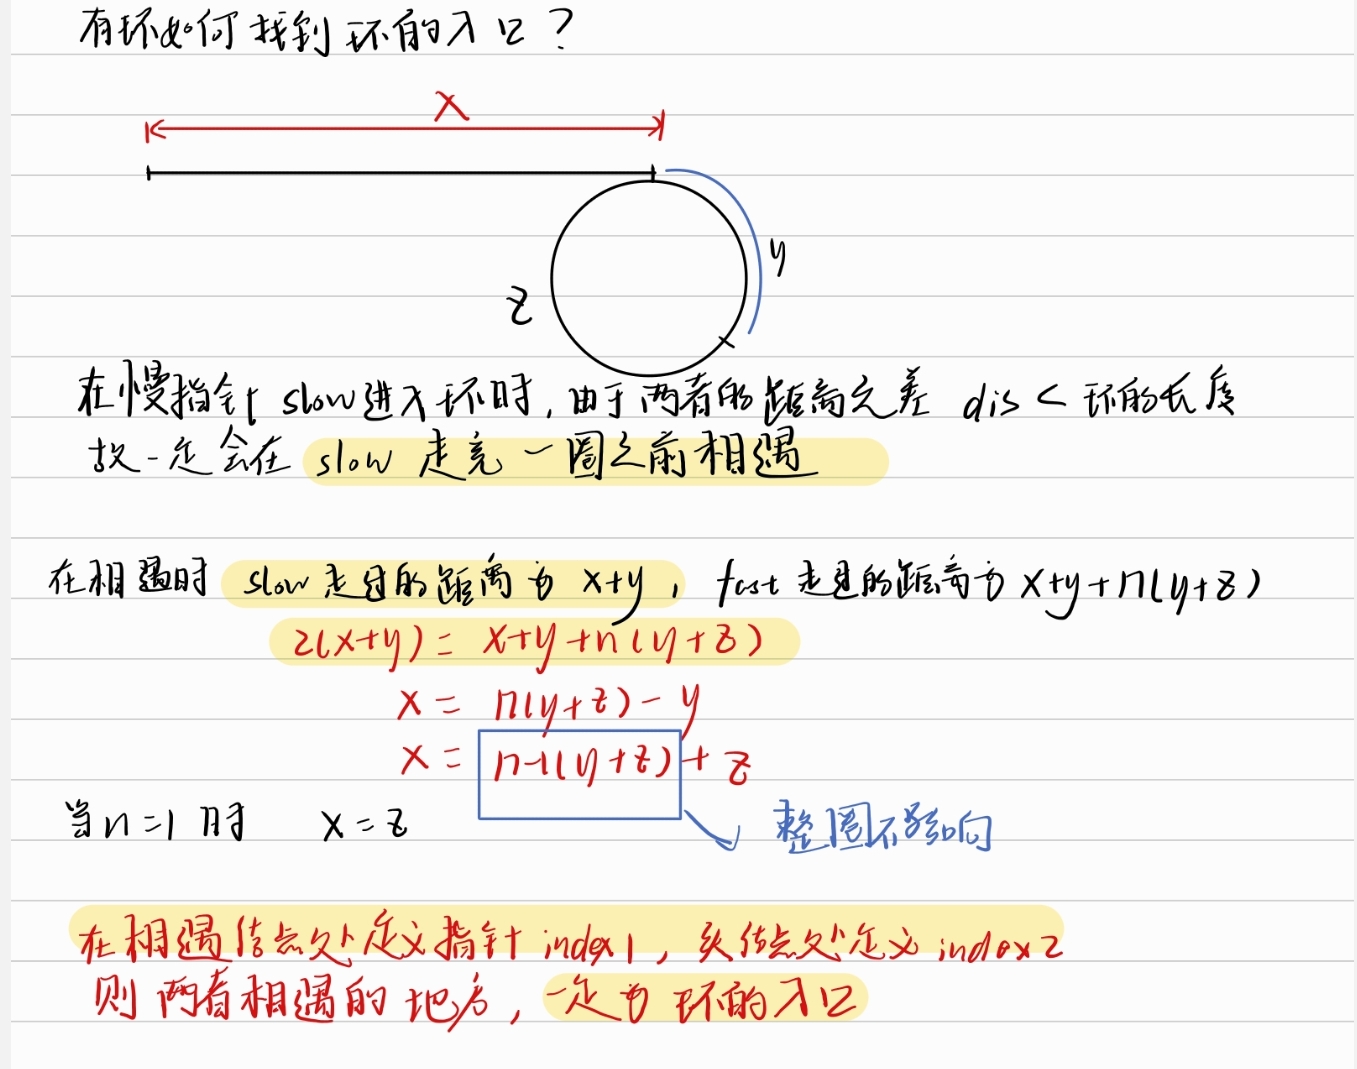 有环如何找到环的入口？
x
y
z
在慢指针 slow进入环时，由于两者的距离之差 dis < 环的长度
故一定会在 slow 走完一圈之前相遇
在相遇时 slow走过的距离为 x+y， fast 走过的距离为 x+y+n(y+z)
2(x+y) = x+y+n(y+z)
x = n(y+z)-y
x = n-1(y+z)+z
当n=1时 x=z
整圈不影响
在相遇结点处定义指针 index1，头结点处定义 index2
则两者相遇的地方，一定为环的入口